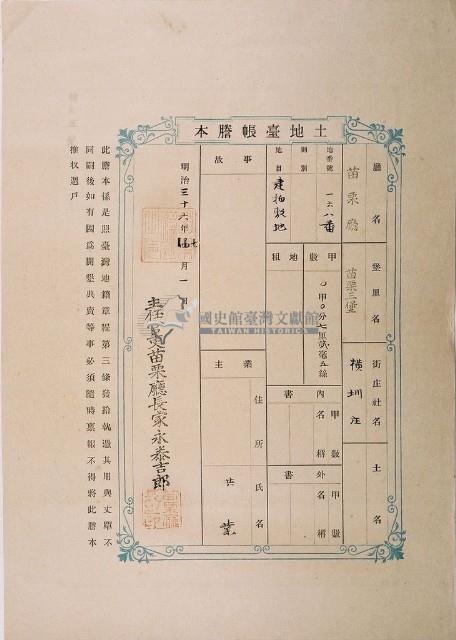 土地臺帳謄本
廳名
苗栗廳
堡里名
苗栗三堡
街庄社名
橫圳庄
土名
地番號
一六八番
則別
地目
建物敷地
甲數
〇甲〇分七厘貳毫五絲
地租
內書
甲數
名稱
外書
甲數
名稱
事故
業主
住所
氏名
共業
明治三十六年
月一日
苗栗廳長家永泰吉郎
此謄本係是照臺灣地籍章程第三條發給執憑其用與丈單不
同嗣後如有因為開墾典賣等事必須隨時稟報不得將此謄本
推收過戶
國史館臺灣文獻館
TAIWAN HISTORICA